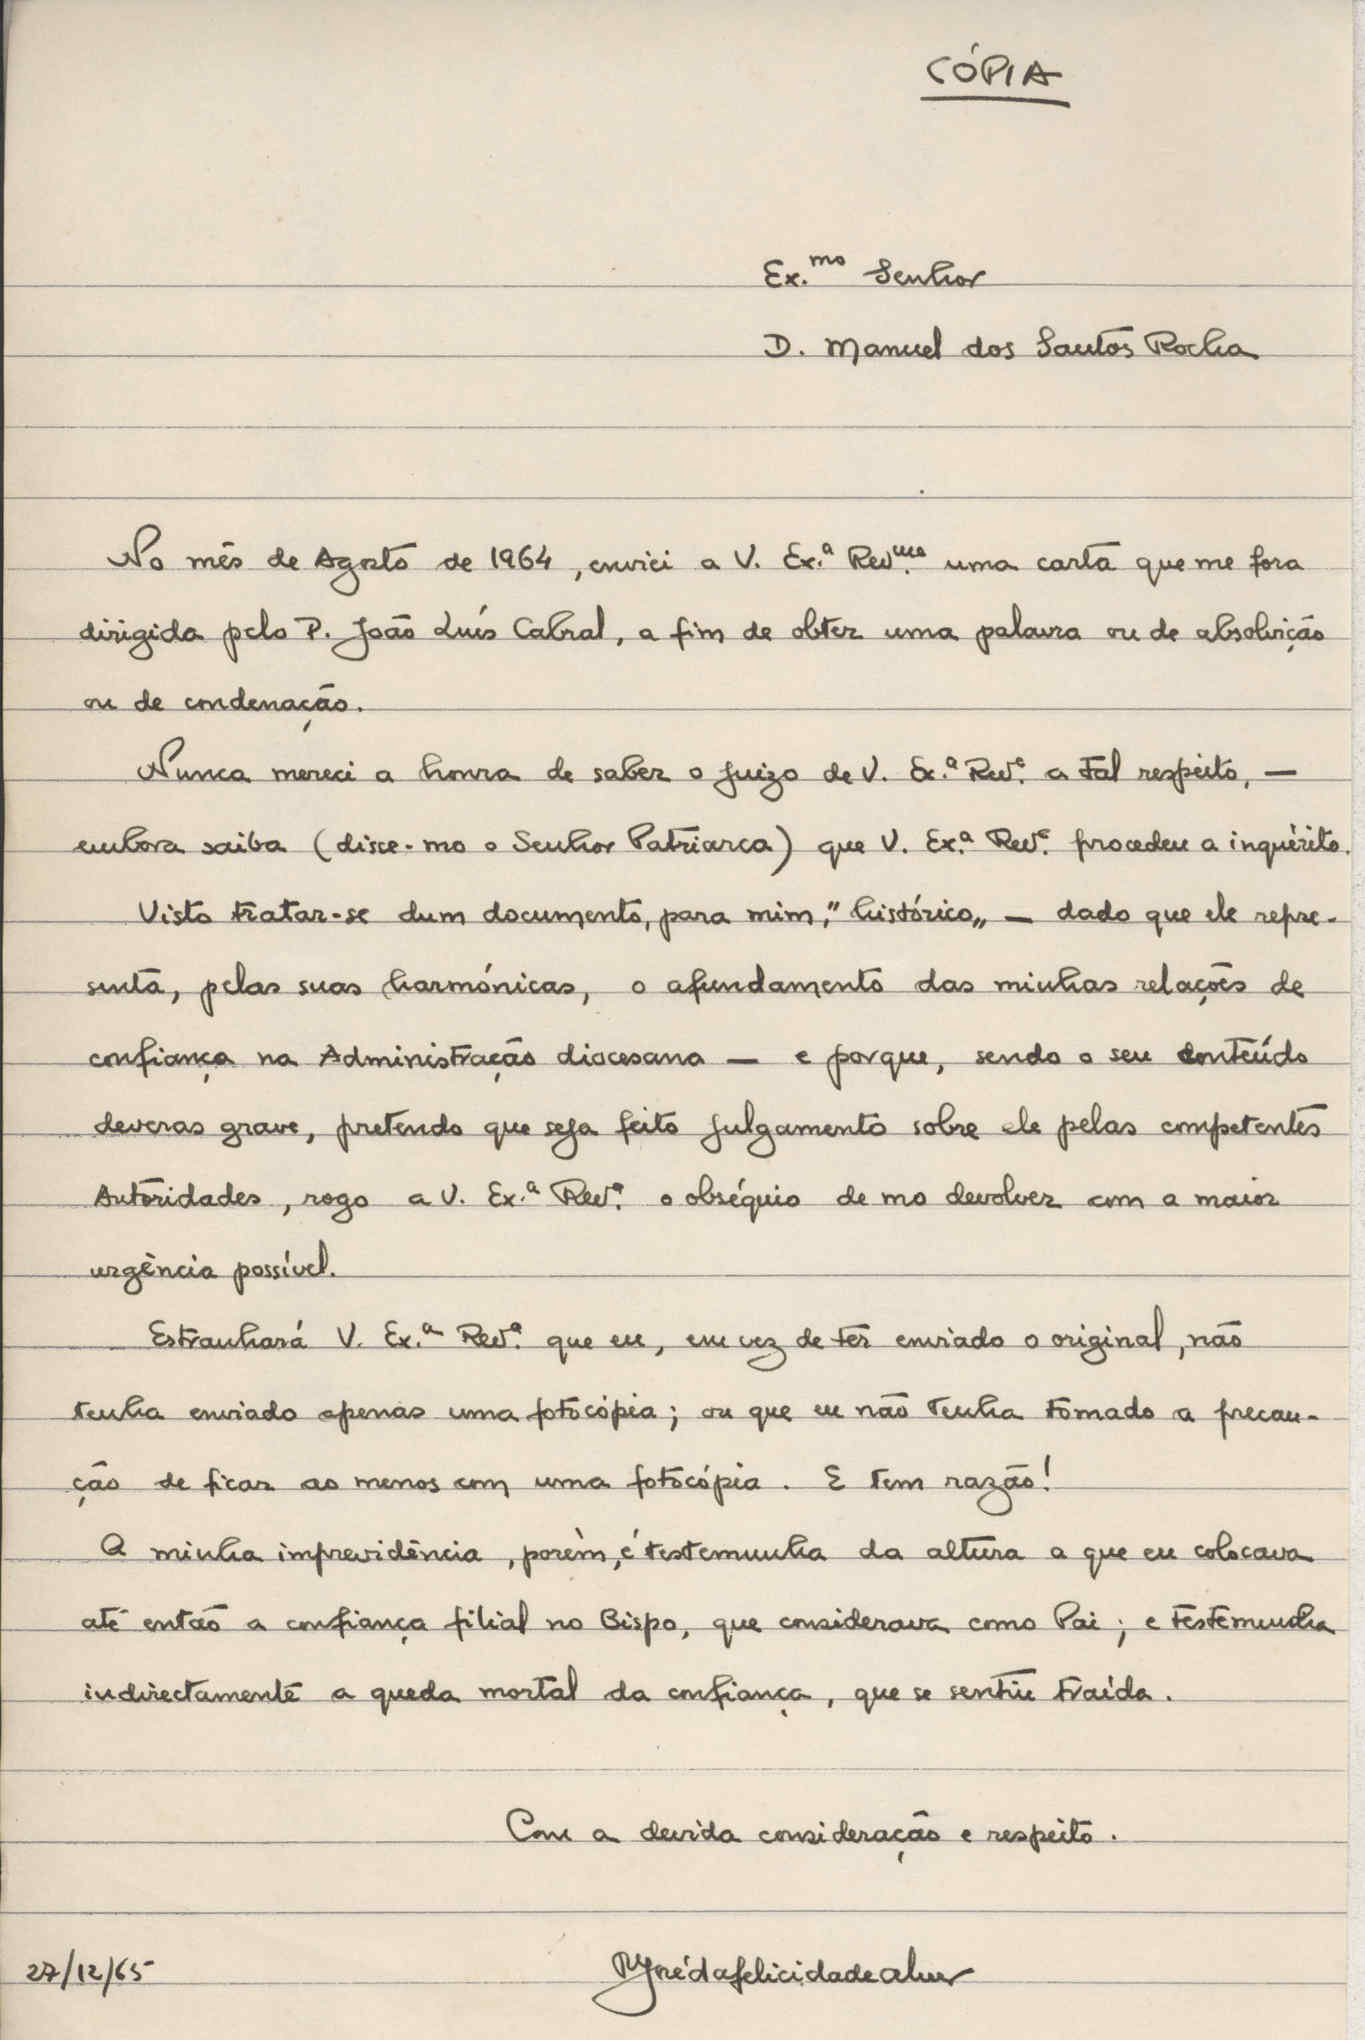 CÓPIA
Ex.mo Senhor
D. Manuel dos Santos Rocha
No mês de Agosto de 1964, enviei a V. Ex.ª Rev.ma uma carta que me fora
dirigida pelo P. João Luís Cabral, a fim de obter uma palavra ou de absolvição
ou de condenação.
Nunca mereci a honra de saber o juizo de V. Ex.ª Rev.ª a tal respeito, —
embora saiba (disse-mo o Senhor Patriarca) que V. Ex.ª Rev.ª procedeu a inquérito.
Visto tratar-se dum documento, para mim, "histórico" — dado que ele repre-
senta, pelas suas harmónicas, o afundamento das minhas relações de
confiança na Administração diocesana — e porque, sendo o seu conteúdo
deveras grave, pretendo que seja feito julgamento sobre ele pelas competentes
Autoridades, rogo a V. Ex.ª Rev.ª o obséquio de mo devolver com a maior
urgência possível.
Estranhará V. Ex.ª Rev.ª que eu, em vez de ter enviado o original, não
tenha enviado apenas uma fotocópia; ou que eu não tenha tomado a precau-
ção de ficar ao menos com uma fotocópia. E tem razão!
A minha imprevidência, porém, é testemunha da altura a que eu colocava
até então a confiança filial no Bispo, que considerava como Pai; e testemunha
indirectamente a queda mortal da confiança, que se sentiu traída.
Com a devida consideração e respeito.
27/12/65
José da felicidade alves